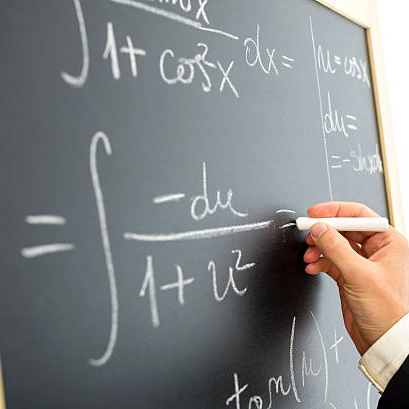 ∫ sinx / 1 + cos²x dx =
u = cosx
du =
= -sinxdx
= ∫ -du / 1 + u² =
tan(u) +